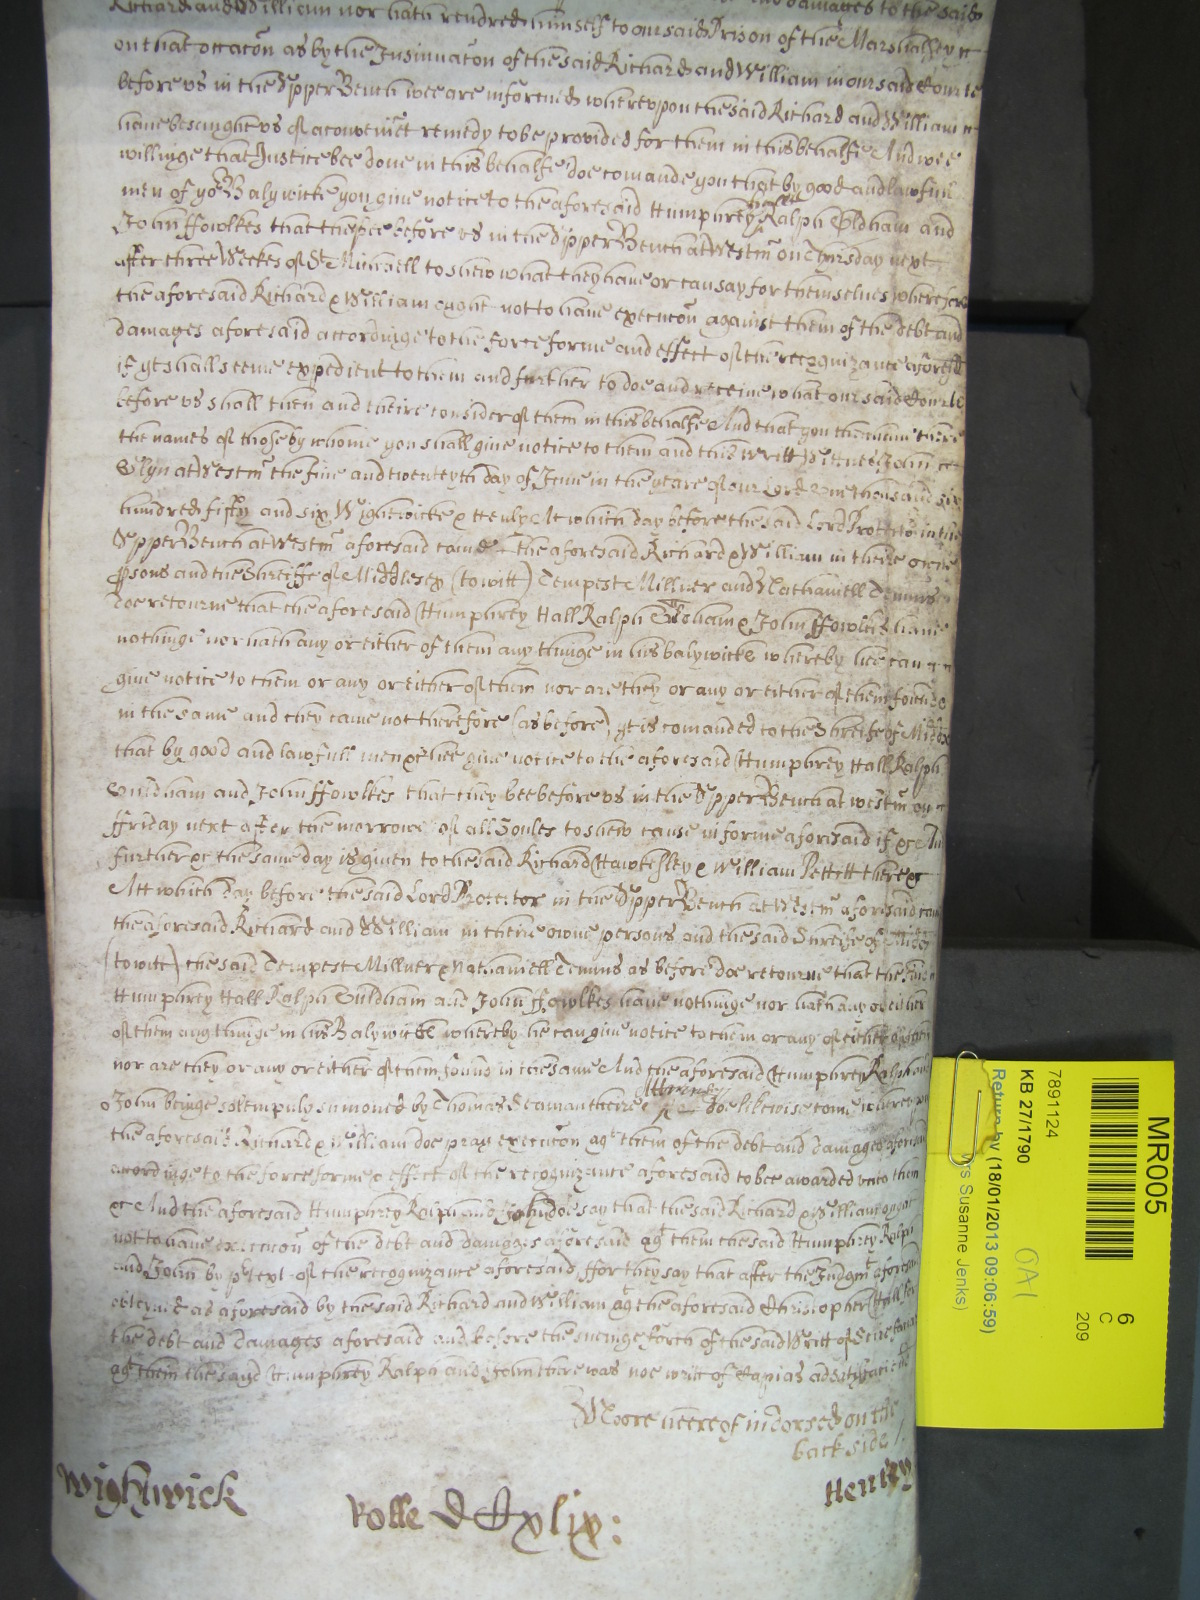 Richard and William nor hath rendred himself to our said Prison of the Marshalsey
on that occacõn as by the Insinuacõn of the said Richard and William in our said Courte
before vs in the Vpper Bench wee are informed wherevpon the said Richard and William
haue besought vs of a convenient remedy to be provided for them in this behalfe And wee
willinge that Justice bee done in this behalfe doe comande you that by good and lawfull
men of yor Balywicke you giue notice to the aforesaid Humphrey Hall Ralph Oldham and
John ffowlkes that they bee before vs in the Vpper Bench at Westm̃ on Thursday next
after three Weekes of St Michaell to shew what they haue or can say for themselues wherefore
the aforesaid Richard & William ought not to haue execucõn against them of the debt and
damages aforesaid accordinge to the force forme and effect of the recognizance aforesaid
if yt shall seeme expedient to them and further to doe and receiue what our said Courte
before vs shall then and theire consider of them in this behalfe And that you then haue there
the names of those by whome you shall giue notice to them and this writt Witnes John
Glyn at Westm̃ the fiue and twentyth day of June in the yeare of our Lord One thousand six
hundred fifty and six Wightwicke & Henly At which day before the said Lord Protector in the
Vpper Bench at Westm̃ aforesaid came the aforesaid Richard & William in theire owne
psons and the Shreiffe of Middlesex (to witt) Tempest Millner and Nathaniell Temms
doe retourne that the aforesaid Humphrey Hall Ralph Oldham & John ffowlkes haue
nothinge nor hath any or either of them any thinge in his balywicke whereby hee can
giue notice to them or any or either of them nor are they or any or either of them founde
in the same and they came not therefore (as before) yt is comanded to the Shreife of Middx
that by good and lawfull men &c hee giue notice to the aforesaid Humphrey Hall Ralph
Ouldham and John ffowlkes that they bee before vs in the Vpper Bench at westm̃ on
ffriday next after the morrowe of all Soules to shew cause in forme aforesaid if &c And
further &c the same day is giuen to the said Richard Hawkesley & William Pettitt there &c
Att which day before the said Lord Protector in the Vpper Bench at Westm̃ aforesaid came
the aforesaid Richard and William in theire owne persons and the said Shreife of Middx
(to witt) the said Tempest Millner & Nathaniell Temms as before doe retourne that the said
Humphrey Hall Ralph Ouldham and John ffowlkes haue nothinge nor hath any or either
of them any thinge in his Balywicke whereby he can giue notice to them or any or either of them
nor are they or any or either of them found in the same And the aforesaid Humphrey Ralph and
John beinge solempnly sumoned by Thomas Seaman theire Atturney doe likewise come wherevpon
the aforesaid Richard & William doe pray execucõn agt them of the debt and damages aforesaid
accordinge to the force forme & effect of the recognizance aforesaid to bee awarded vnto them
&c And the aforesaid Humphrey Ralph and John doe say that the said Richard & William ought
not to haue execucõn of the debt and damages aforesaid agt them the said Humphrey Ralph
and John by ptext of the recognizance aforesaid ffor they say that after the Judgmt aforesaid
obteyned as aforesaid by the said Richard and William agt the aforesaid Christopher Hall for
the debt and damages aforesaid and before the sueinge forth of the said Writt of Scire facias
agt them the said Humphrey Ralph and John there was noe writt of Capias ad satisfaciend
Moore heere of indorsed on the
back side /.
Wightwick
Rolle DCxlix:
Henley
MR005
6
C
209
7891124
KB 27/1790
CA1
Return by (18/01/2013 09:06:59)
Mrs Susanne Jenks)